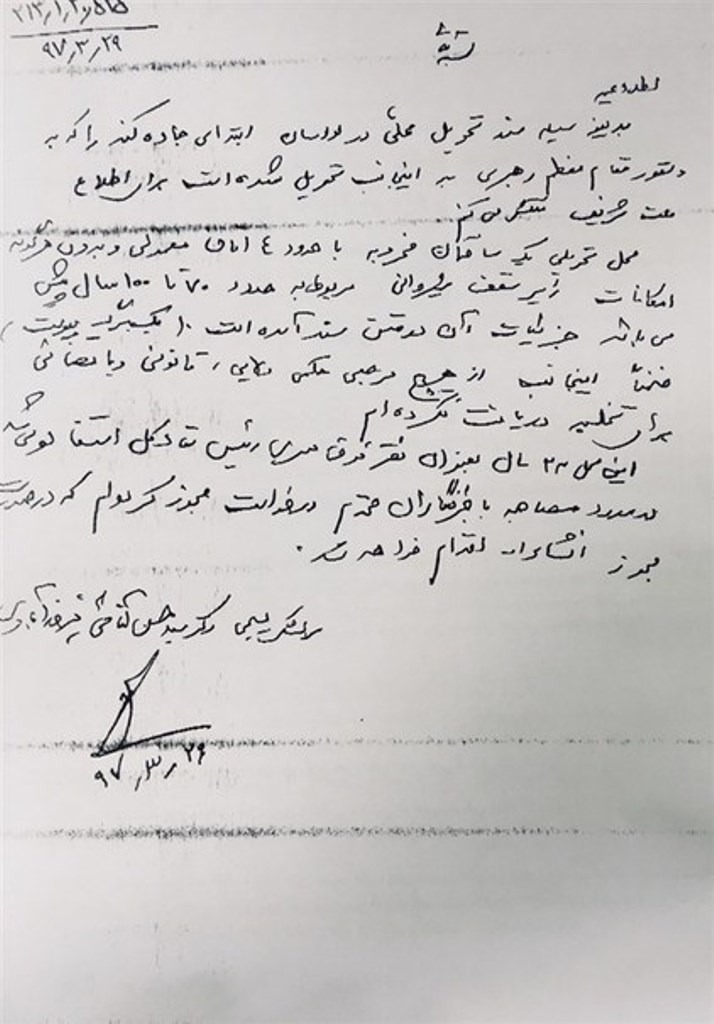 ۹۷٫۳٫۲۹
بسمه تعالی
اطلاعیه
بدینوسیله سند تحویل محلی در لواسان ابتدای جاده کند را که به
دستور مقام معظم رهبری به اینجانب تحویل شده است برای اطلاع
ملت شریف منتشر می کنم.
محل تحویلی یک ساختمان مخروبه با حدود ٤ اتاق معمولی و بدون هرگونه
امکانات زیر سقف شیروانی مربوط به حدود ۷۰ تا ۱۰۰ سال پیش
می باشد جزئیات آن در متن سند آمده است. (یک برگ پیوست)
ضمناً اینجانب از هیچ مرجعی حکمی ولایی، قانونی و یا قضائی
برای تخلیه دریافت نکرده ام
این محل ۲۰ سال بعنوان دفتر فوق سری رئیس ستاد کل استفاده
در مورد مصاحبه با خبرنگاران محترم درخواست مجوز کرده ام که در صورت
مجوز انشاءالله اقدام خواهد شد.
سرلشکر بسیجی دکتر سید حسن فیروزآبادی
۹۷٫۳٫۲۹